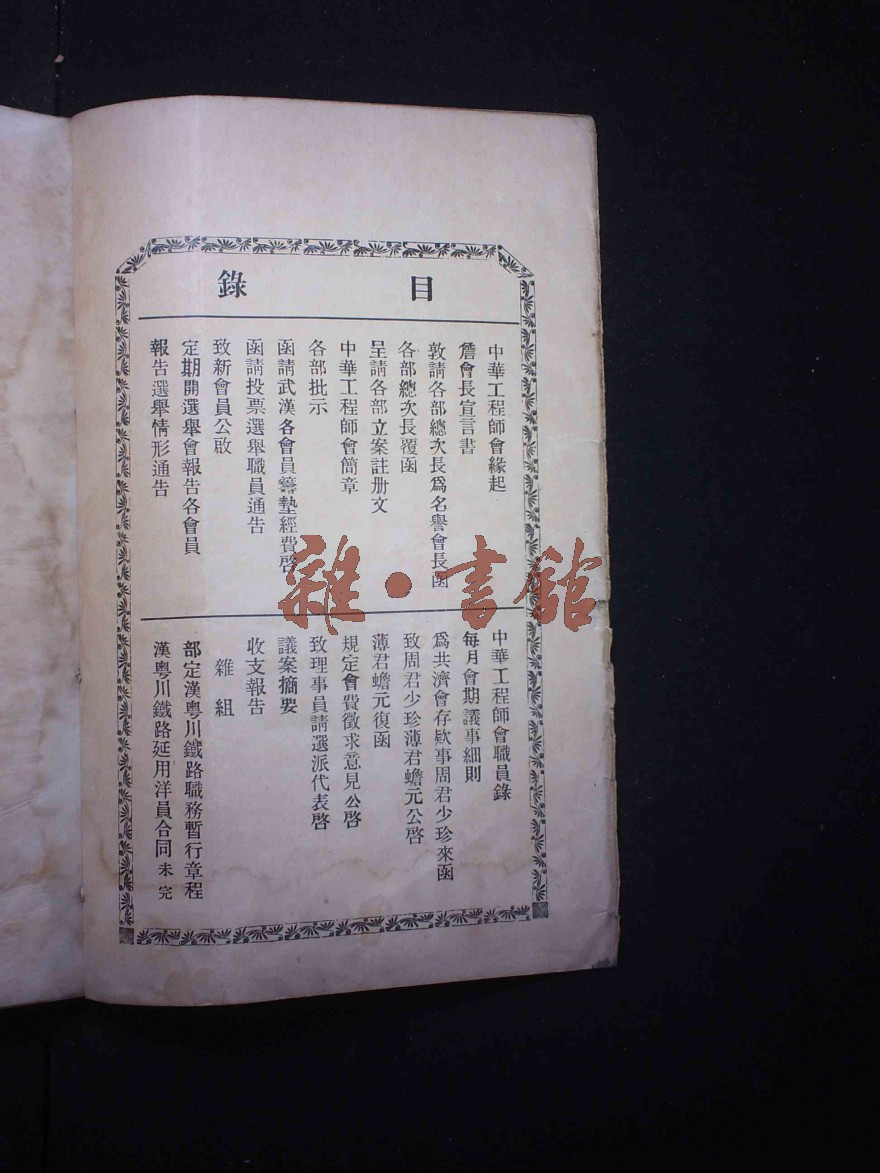 目錄
中華工程師會緣起
詹會長宣言書
敦請各部總次長爲名譽會長函
各部總次長覆函
呈請各部立案註册文
中華工程師會簡章
各部批示
函請武漢各會員籌墊經費啓
函請投票選舉職員通告
致新會員公啟
定期開選舉會報告各會員
報告選舉情形通告
中華工程師會職員錄
每月會期議事細則
爲共濟會存欵事周君少珍來函
致周君少珍薄君蟾元公啓
薄君蟾元復函
規定會費徵求意見公啓
致理事員請選派代表啓
議案摘要
收支報告
雜組
部定漢粵川鐵路職務暫行章程
漢粵川鐵路延用洋員合同未完
雜·書館